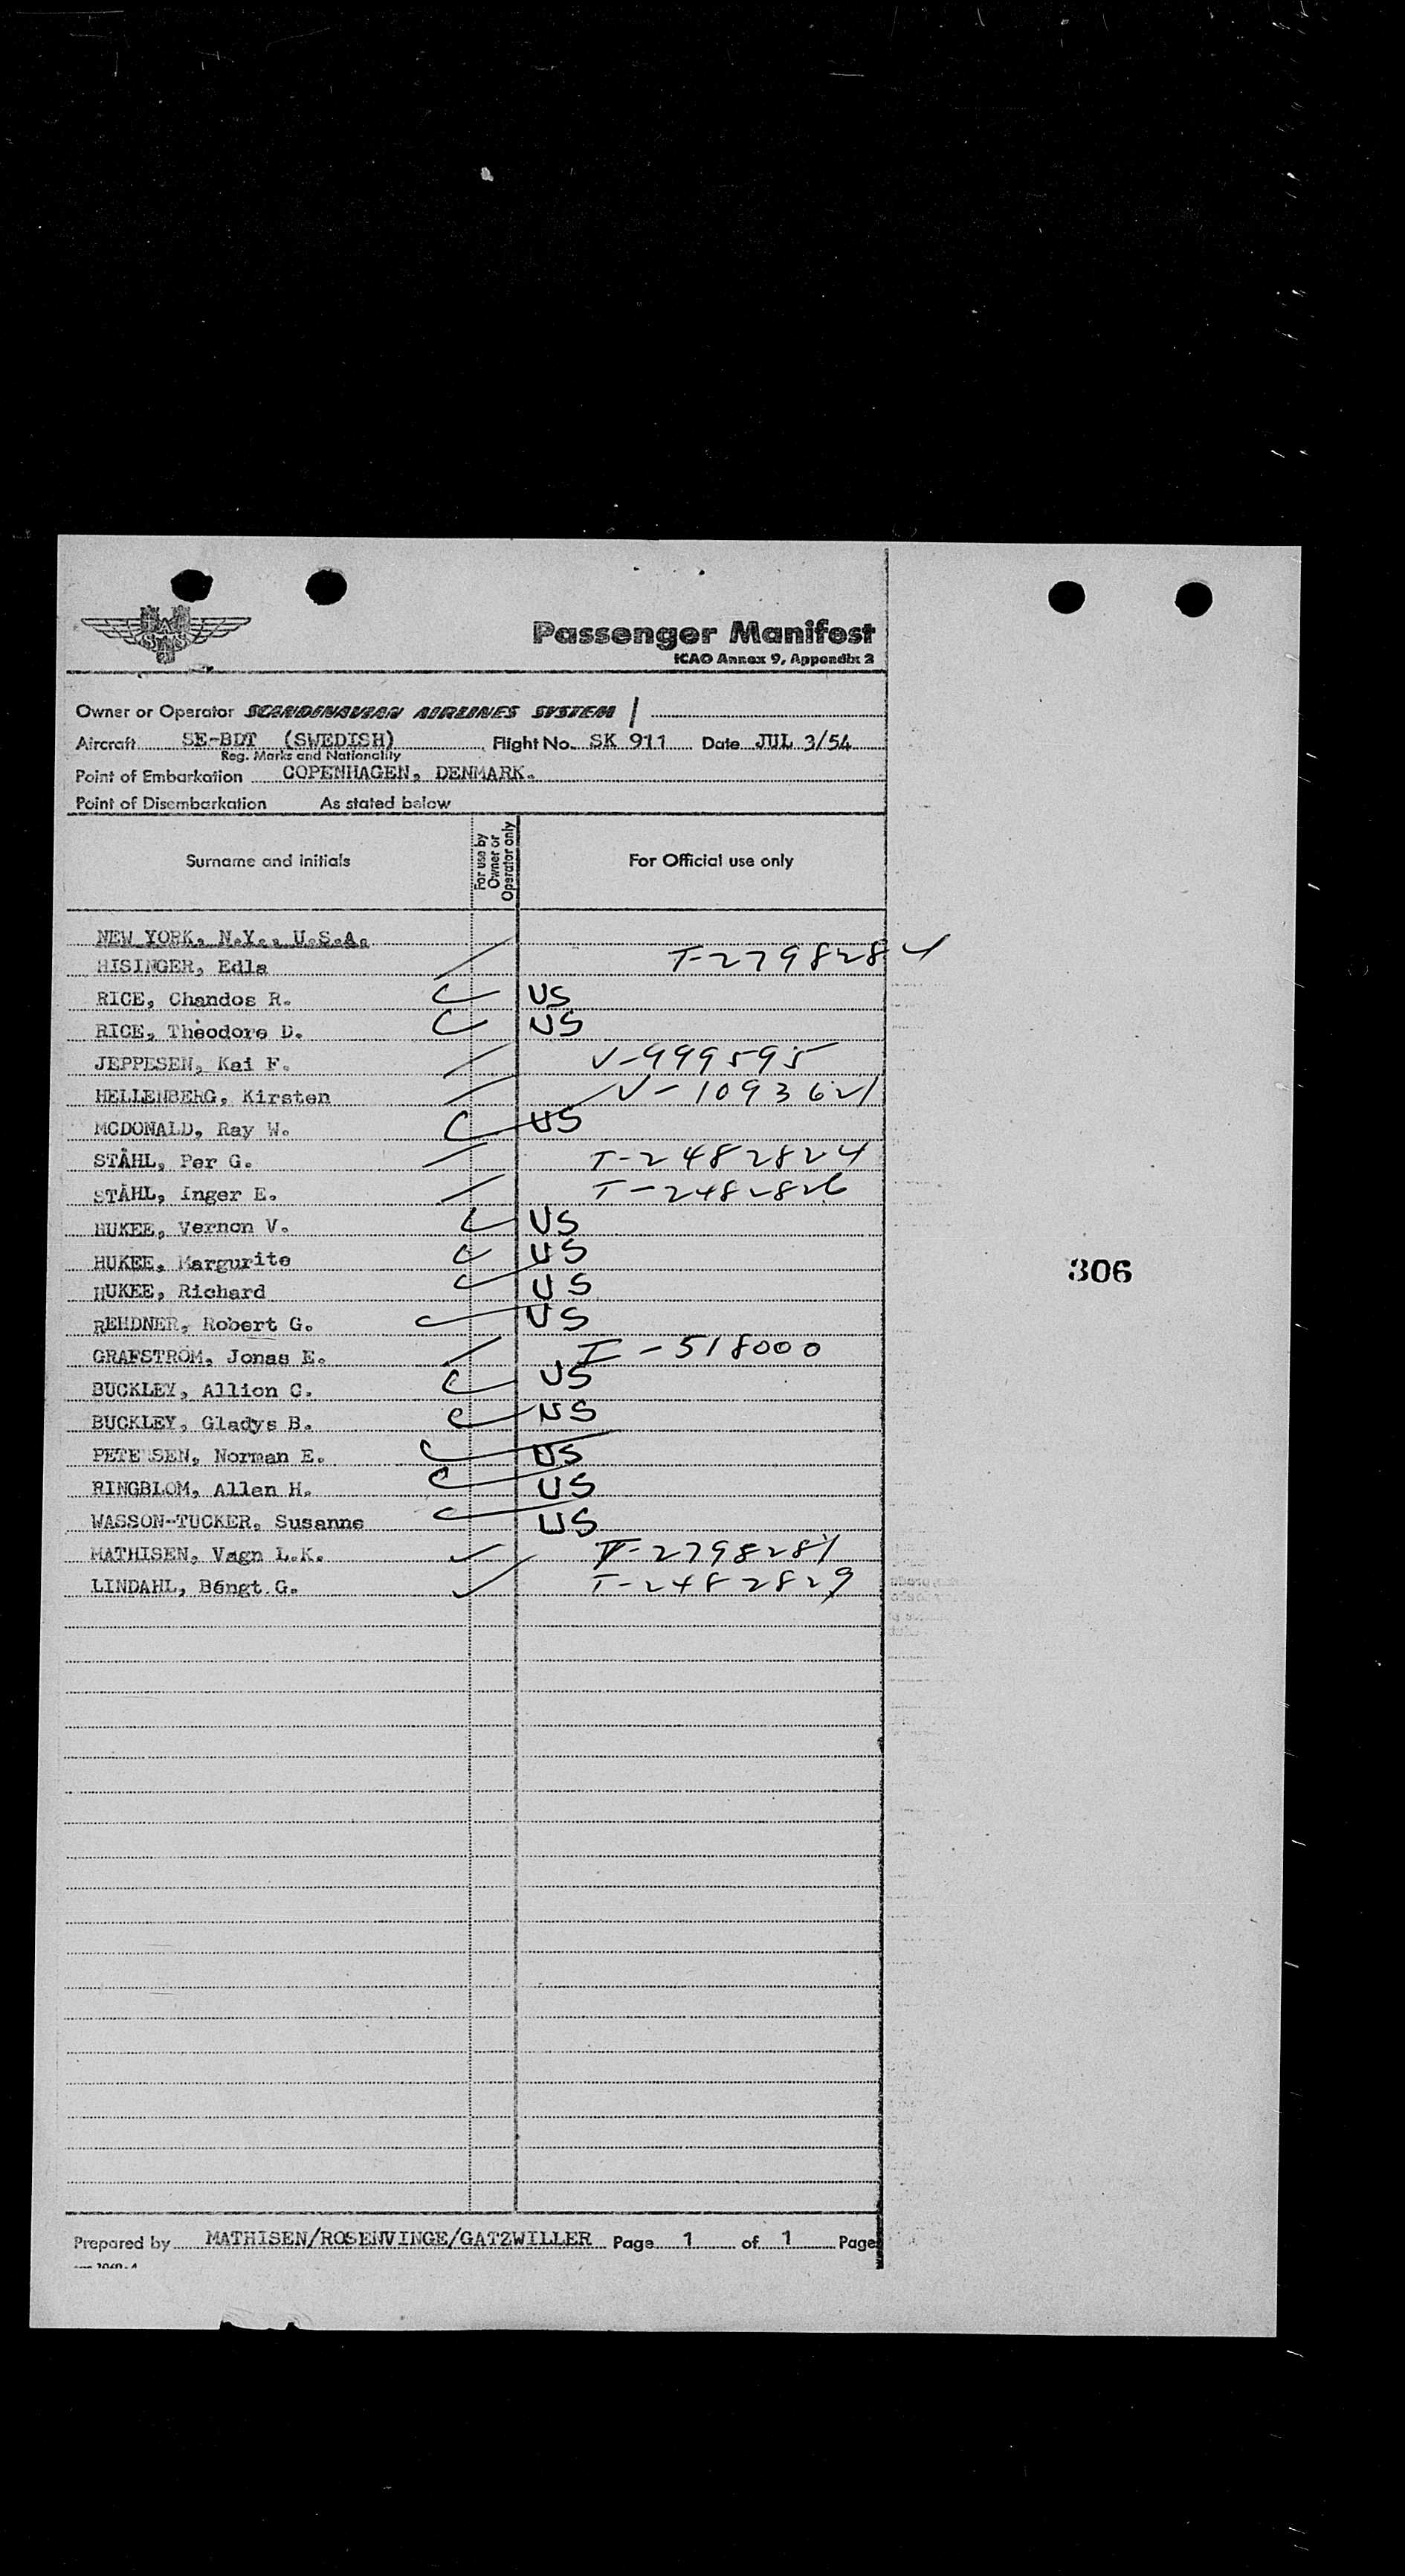 SAS
Passenger Manifest
ICAO Annex 9, Appendix 2
Owner or Operator SCANDINAVIAN AIRLINES SYSTEM /
Aircraft SE-BDT (SWEDISH) Flight No. SK 911 Date JUL 3/54
Reg. Marks and Nationality
Point of Embarkation COPENHAGEN, DENMARK.
Point of Disembarkation As stated below
Surname and initials For use by Owner or Operator only For Official use only
NEW YORK, N.Y., U.S.A.
HISINGER, Edla T-2798284
RICE, Chandos R. C US
RICE, Theodore D. C US
JEPPESEN, Kai F. V-999595
HELLENBERG, Kirsten V-1093621
MCDONALD, Ray W. C US
STÅHL, Per G. T-2482824
STÅHL, Inger E. T-2482826
HUKEE, Vernon V. C US
HUKEE, Margurite C US
HUKEE, Richard C US
REHDNER, Robert G. C US
GRAFSTRÖM, Jonas E. I-518000
BUCKLEY, Allion C. C US
BUCKLEY, Gladys B. C US
PETERSEN, Norman E. C US
RINGBLOM, Allan H. C US
WASSON-TUCKER, Susanne C US
MATHISEN, Vagn L.K. T-2798281
LINDAHL, Bengt G. T-2482829
306
Prepared by MATHISEN/ROSENVINGE/GATZWILLER Page 1 of 1 Page